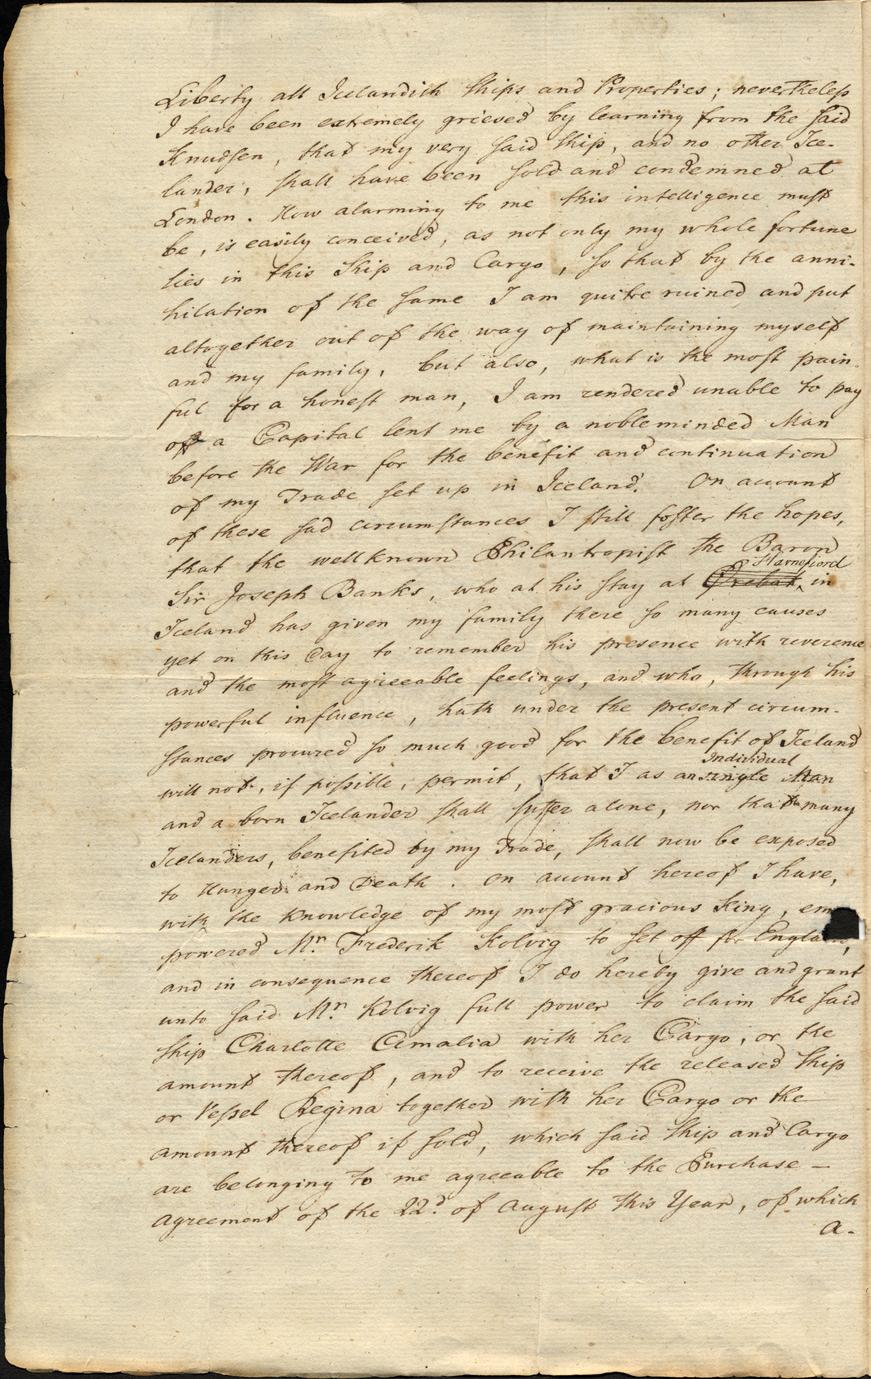 Liberty all Icelandish Ships and Properties; nevertheless
I have been extremely grieved by learning from the said
Knudsen, that my very said Ship, and no other Ice-
lander, shall have been sold and condemned at
London. How alarming to me this intelligence must
be, is easily conceived, as not only my whole fortune
lies in this Ship and Cargo, so that by the anni-
hilation of the same I am quite ruined and put
altogether out of the way of maintaining myself
and my family, but also, what is the most pain-
ful for a honest man, I am rendered unable to pay
off a Capital lent me by a nobleminded Man
before the War for the benefit and continuation
of my Trade set up in Iceland. On account
of these sad circumstances I still foster the hopes,
that the wellknown Philantropist the Baron
Sir Joseph Banks, who at his stay at Harnefiord in
Iceland has given my family there so many causes
yet on this Day to remember his presence with reverence
and the most agreeable feelings, and who, through his
powerful influence, hath under the present circum-
stances procured so much good for the benefit of Iceland
will not, if possible, permit, that I as an Individual single Man
and a born Icelander shall suffer alone, nor that many
Icelanders, benefited by my Trade, shall now be exposed
to Hunger and Death. On account hereof I have,
with the Knowledge of my most gracious King, em
powered Mr. Frederik Kolvig to set off for England,
and in consequence thereof I do hereby give and grant
unto said Mr. Kolvig full power to claim the said
Ship Charlotte Amalia with her Cargo, or the
amount thereof, and to receive the released Ship
or Vessel Regina together with her Cargo or the
amount thereof if sold, which said Ship and Cargo
are belonging to me agreeable to the Purchase –
agreement of the 22d. of August this Year, of which
a.